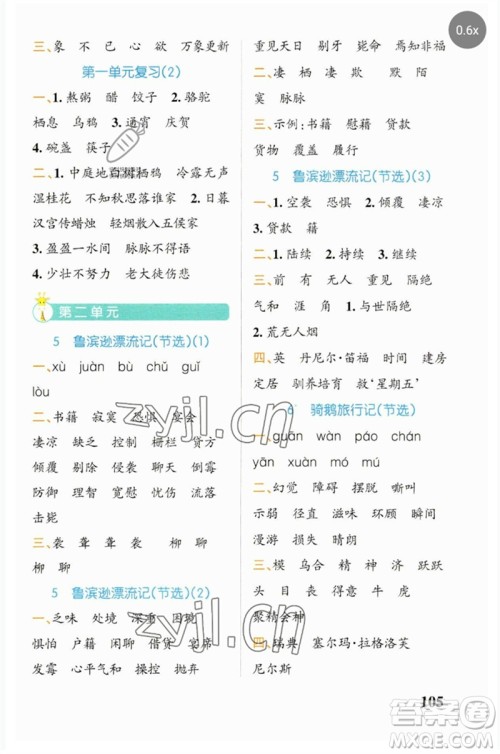 0.6x
三、象 不 已 心 欲 万象更新
第一单元复习(2)
一、1. 熬粥 醋 饺子 2. 骆驼
栖息 乌鸦 3. 通宵 庆贺
4. 碗盏 筷子
二、1. 中庭地白树栖鸦 冷露无声
湿桂花 不知秋思落谁家 2. 日暮
汉宫传蜡烛 轻烟散入五侯家
3. 盈盈一水间 脉脉不得语
4. 少壮不努力 老大徒伤悲
第二单元
5 鲁滨逊漂流记(节选)(1)
一、xù juàn bù chǔ guǐ
lòu
二、书籍 寂寞 恐惧 宴会
凄凉 缺乏 控制 栅栏 贷款
倾覆 剔除 经历 聊天 倒霉
防御 理智 宽慰 忧愁 流落
击毙
三、袭 聋 聋 袭 柳 聊
柳 聊
5 鲁滨逊漂流记(节选)(2)
一、乏味 处境 深重 困境
惧怕 户籍 闲聊 借贷 宴席
发霉 心平气和 操控 抛弃
重见天日 剃牙 毙命 焉知非福
二、凄 栖 欺 默 陌
寞 脉脉
三、示例:书籍 慰藉 贷款
货物 覆盖 履行
5 鲁滨逊漂流记(节选)(3)
一、1. 空袭 恐惧 2. 倾覆 凄凉
3. 贷款 籍
二、1. 陆续 2. 持续 3. 继续
三、前 有 无 难 隔绝
气和 涯 角 1. 与世隔绝
2. 荒无人烟
四、英 丹尼尔·笛福 时间 建房
定居 驯养培育 救‘星期五’
6 骑鹅旅行记(节选)
一、guǎn wān páo chán
yān xuàn mó mú
二、幻觉 障碍 摆脱 嘶叫
示弱 恶劣 滋味 原谅 拜访
漫游 游览 损失
三、模 乌合 精神 济 跃跃
头 目 丧 得意 虎
聚精会神
四、瑞典 塞尔玛·拉格洛芙
尼尔斯
105
zyjl.cn
zyjl.cn
答案圈
MXQE.COM